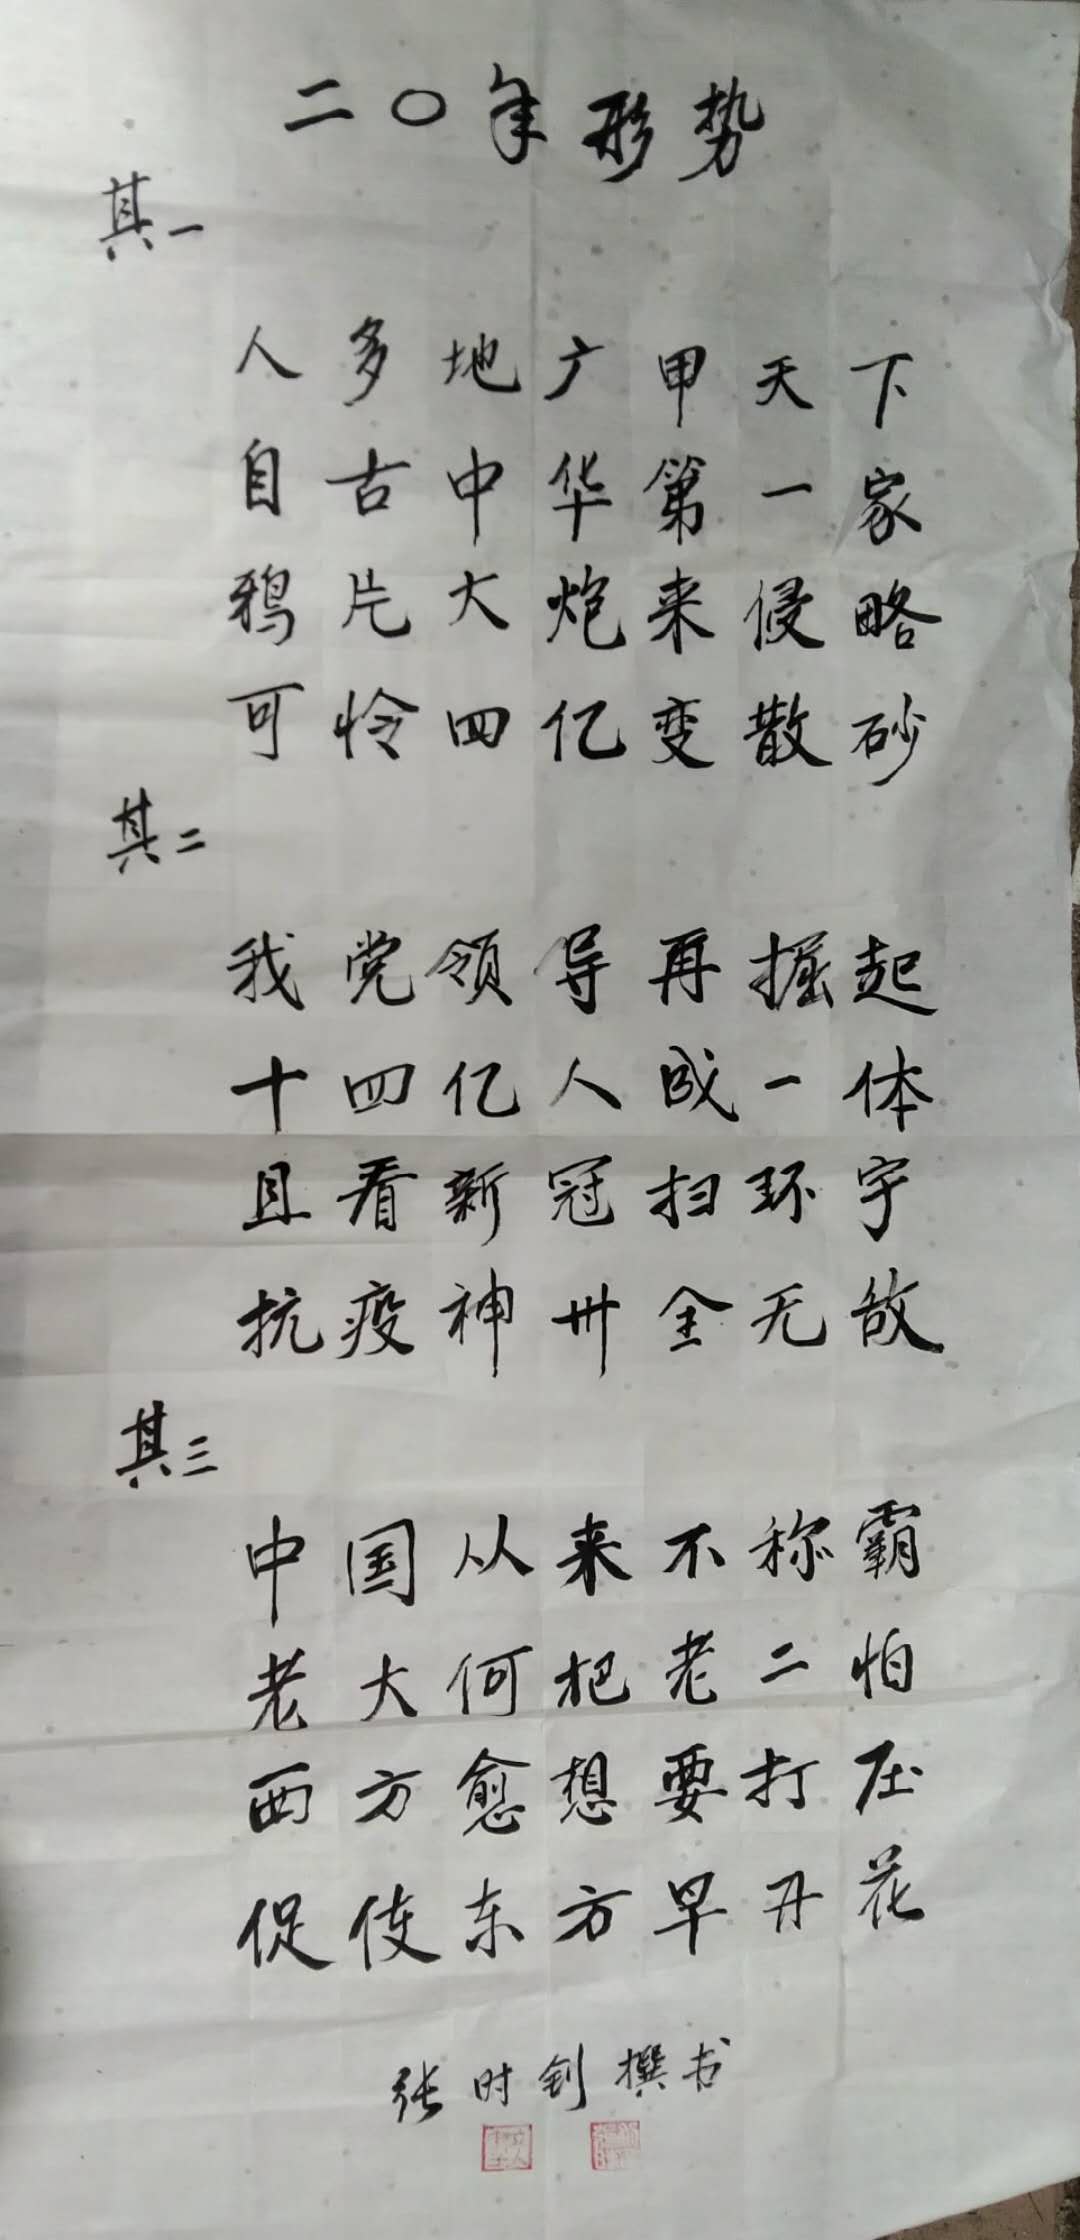 二〇年形势
其一
人多地广甲天下
自古中华第一家
鸦片大炮来侵略
可怜四亿变散砂
其二
我党领导再掘起
十四亿人成一体
且看新冠扫环宇
抗疫神州全无敌
其三
中国从来不称霸
老大何把老二怕
西方愈想要打压
促使东方早开花
张时钊撰书